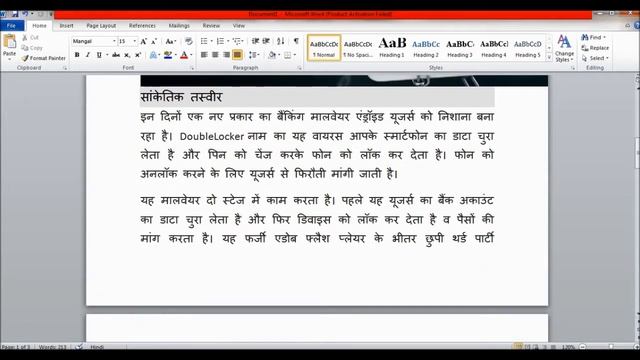 Document1 - Microsoft Word (Product Activation Failed)
File Home Insert Page Layout References Mailings Review View
Cut
Copy
Format Painter
Paste
Clipboard
Mangal 15
Font
Paragraph
AaBbCcDc AaBbCcDc AaB AaBbCc AaBbCcI AaBbCcI AaBbCcI
¶ Normal ¶ No Spaci... Heading 1 Heading 2 Heading 3 Heading 4 Heading 5
Change Styles
Styles
Find
Replace
Select
Editing
सांकेतिक तस्वीर
इन दिनों एक नए प्रकार का बैंकिंग मालवेयर एंड्रॉइड यूजर्स को निशाना बना
रहा है। DoubleLocker नाम का यह वायरस आपके स्मार्टफोन का डाटा चुरा
लेता है और पिन को चेंज करके फोन को लॉक कर देता है। फोन को
अनलॉक करने के लिए यूजर्स से फिरौती मांगी जाती है।
यह मालवेयर दो स्टेज में काम करता है। पहले यह यूजर्स का बैंक अकाउंट
का डाटा चुरा लेता है और फिर डिवाइस को लॉक कर देता है व पैसों की
मांग करता है। यह फर्जी एडोब फ्लैश प्लेयर के भीतर छुपी थर्ड पार्टी
Page: 1 of 3 Words: 213 Hindi 120%